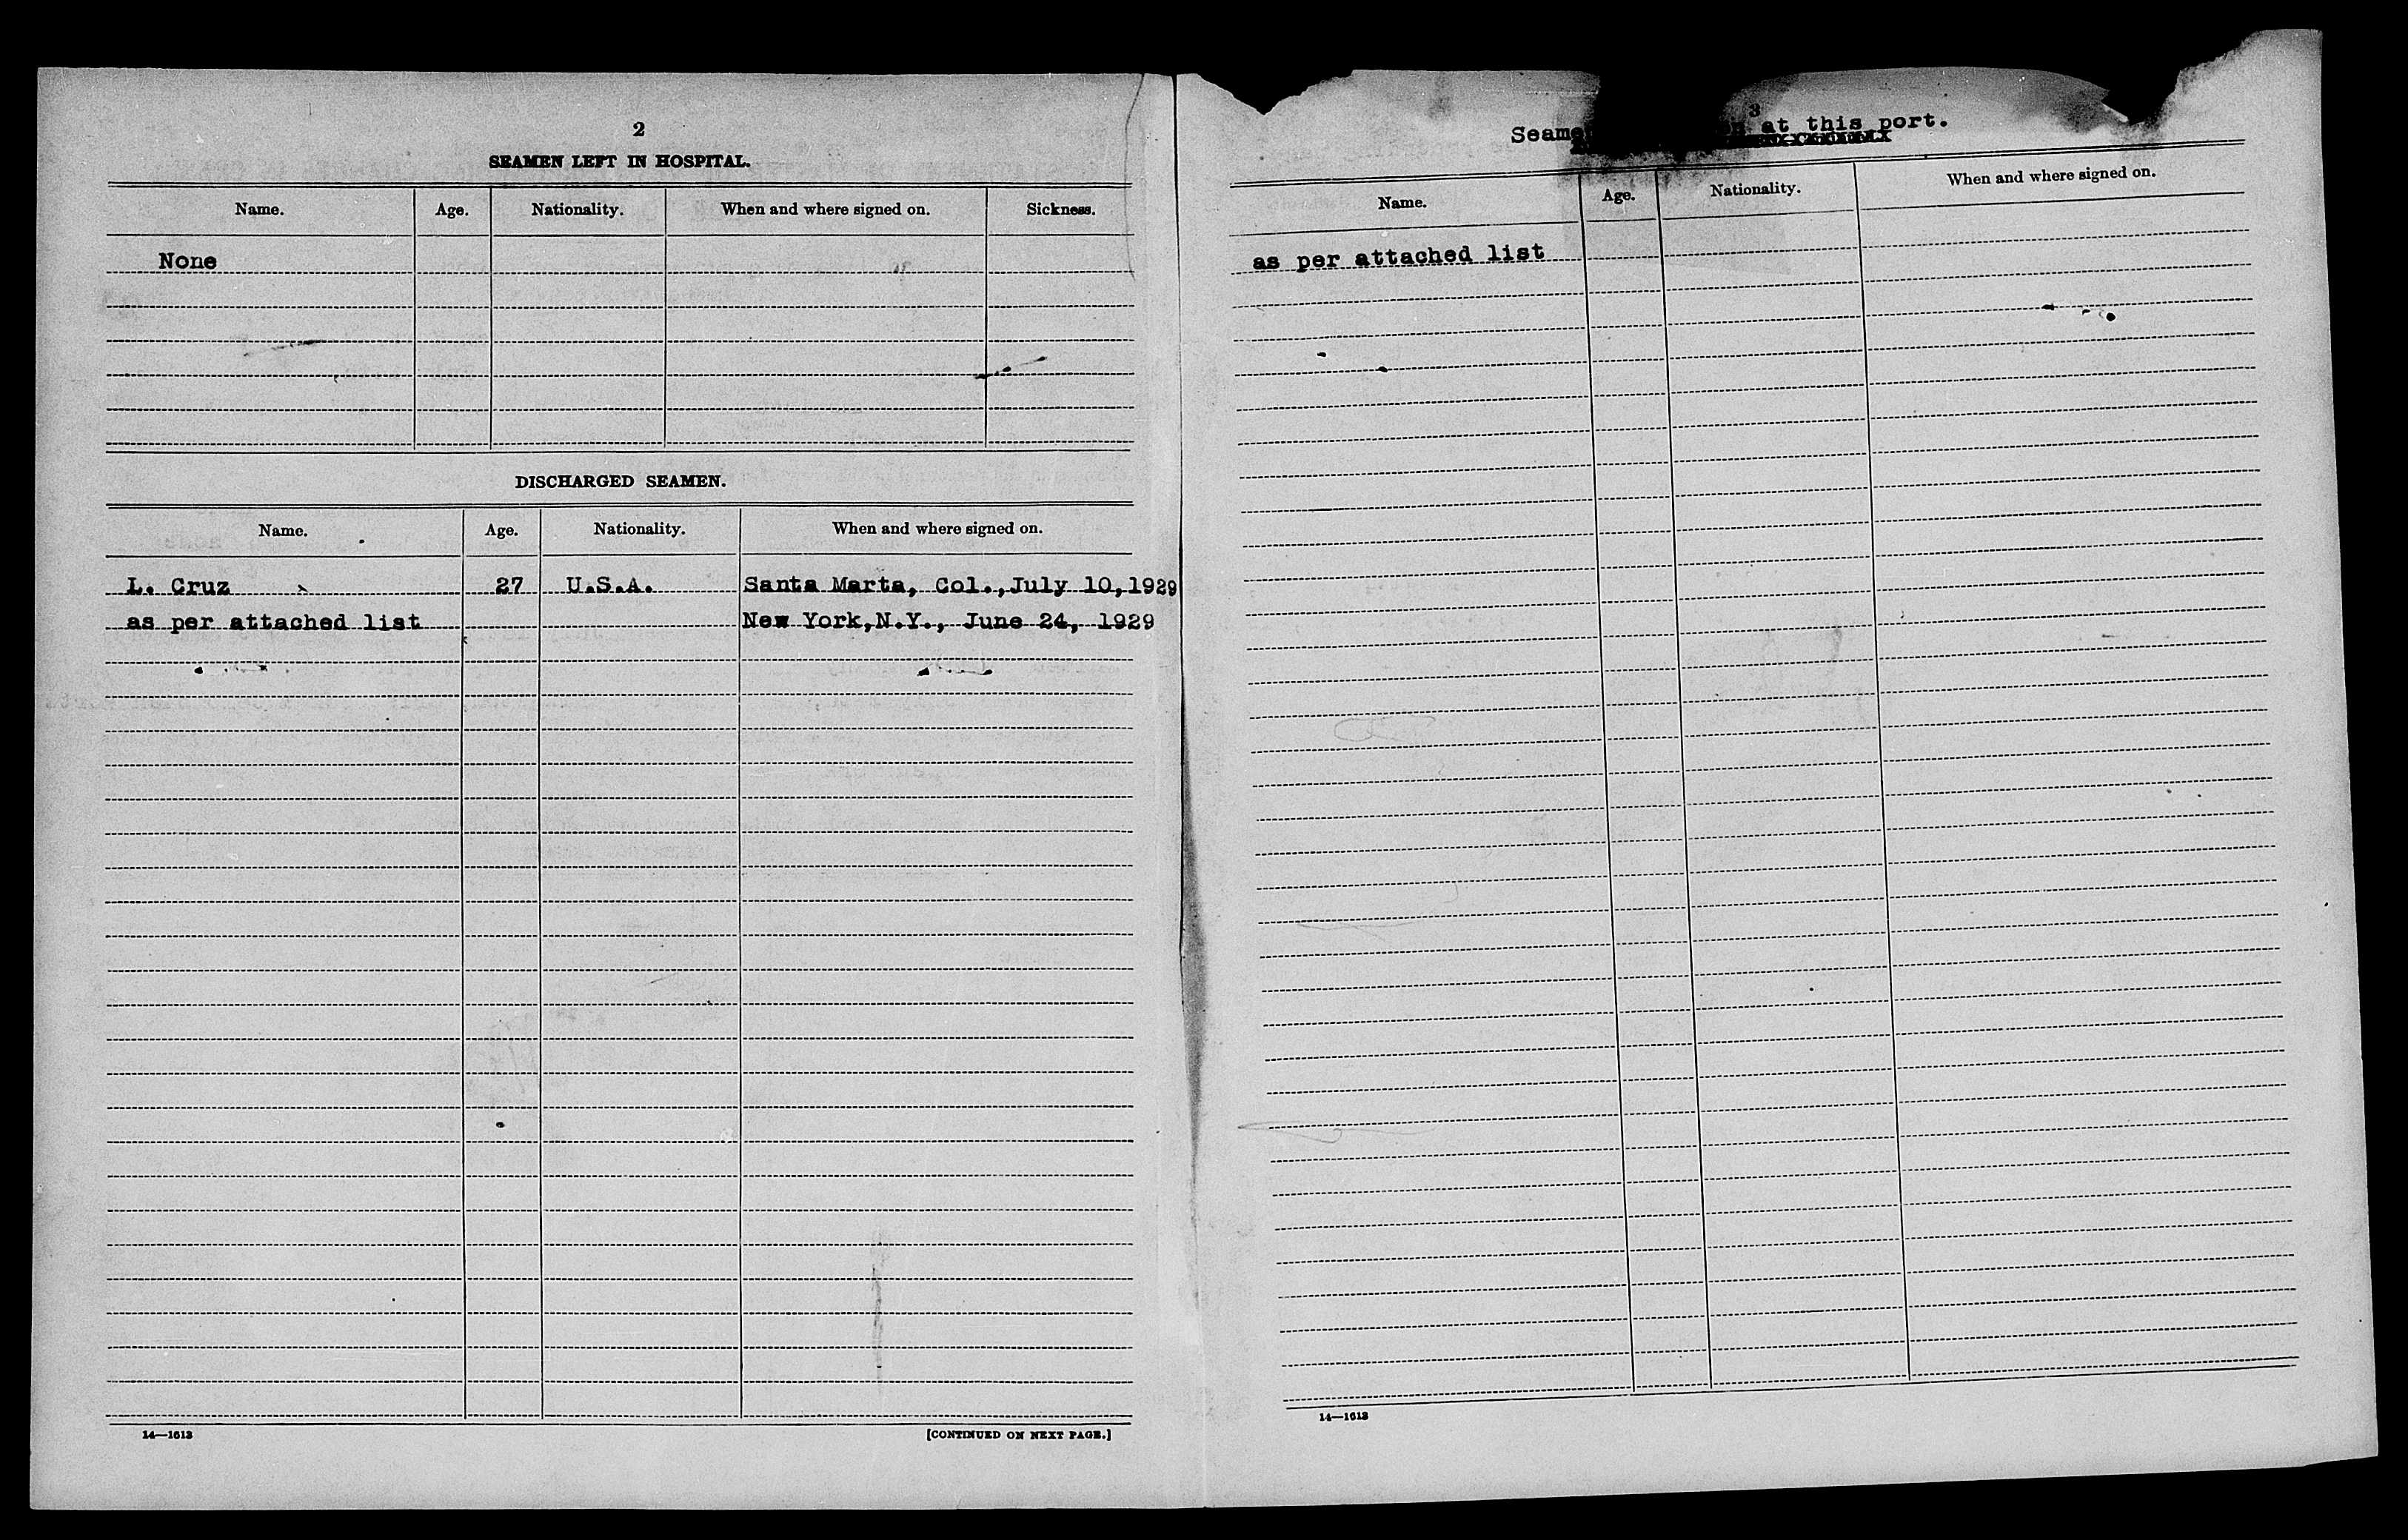 2
SEAMEN LEFT IN HOSPITAL.
Name. Age. Nationality. When and where signed on. Sickness.
None
DISCHARGED SEAMEN.
Name. Age. Nationality. When and where signed on.
L. Cruz 27 U.S.A. Santa Marta, Col.,July 10,1929
as per attached list New York,N.Y., June 24, 1929
14—1613
[CONTINUED ON NEXT PAGE.]
3
at this port.
Name. Age. Nationality. When and where signed on.
as per attached list
14—1613